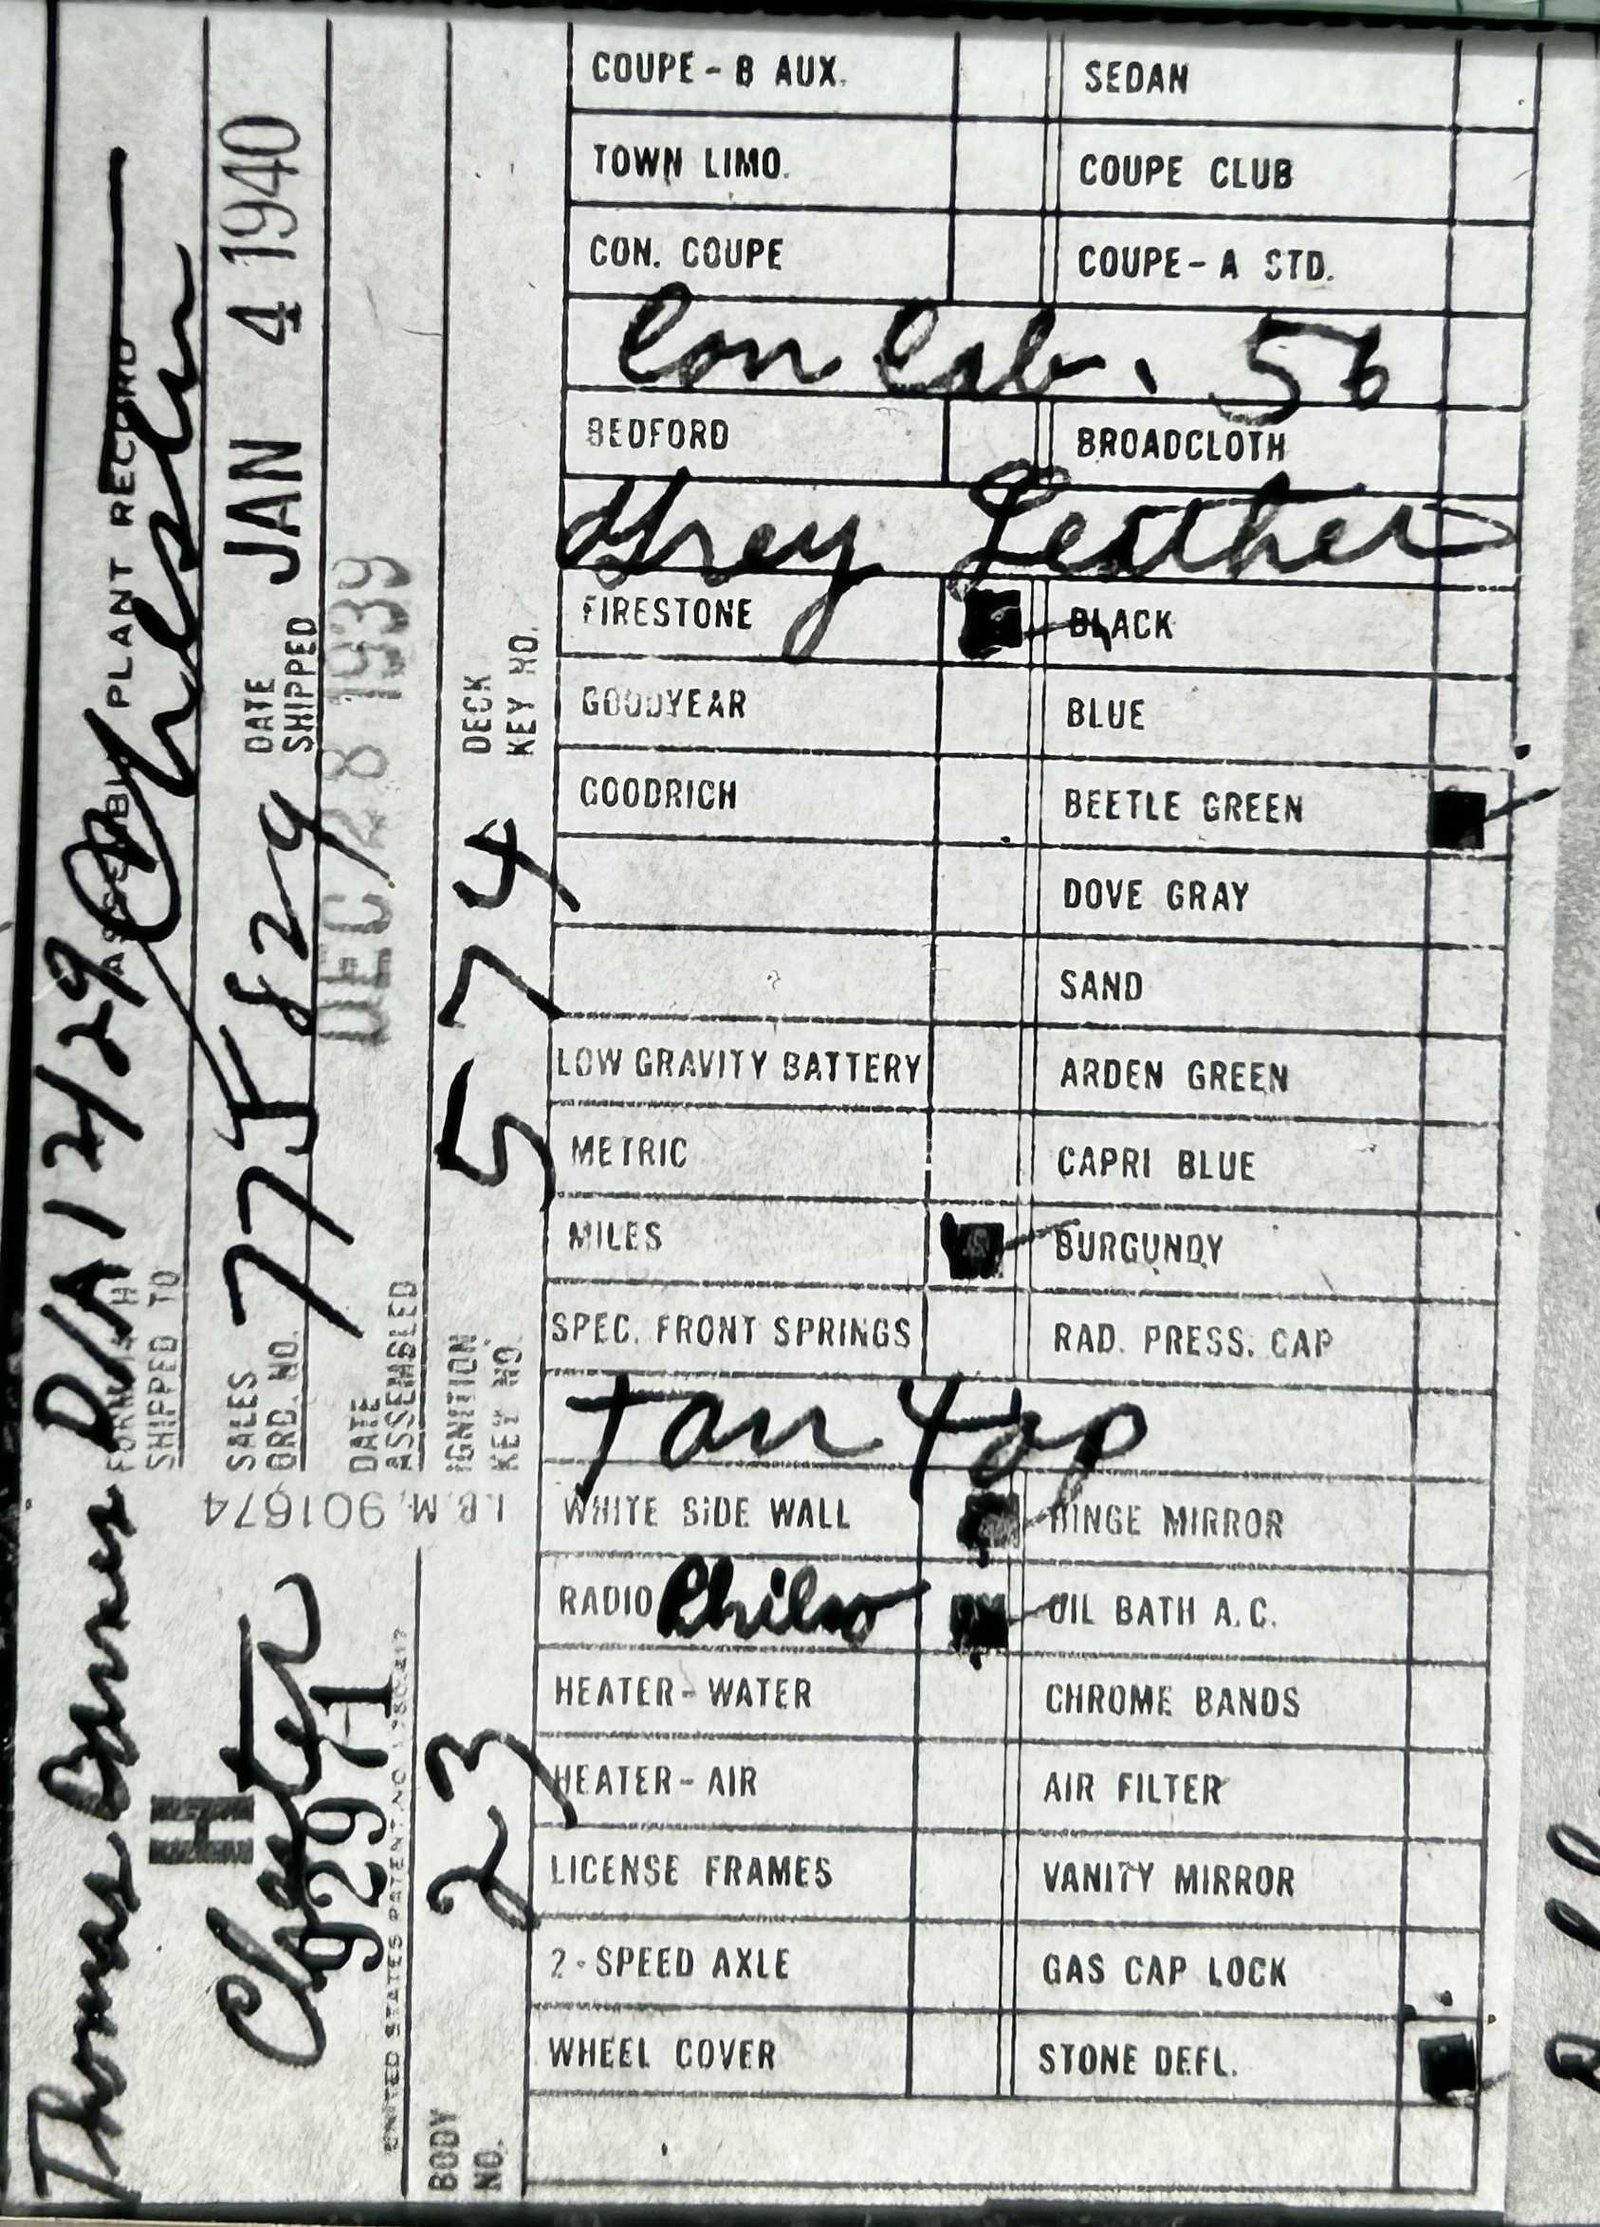 COUPE - B AUX. SEDAN
TOWN LIMO. COUPE CLUB
CON. COUPE COUPE - A STD.
Con Cab. 56
BEDFORD BROADCLOTH
Grey Leather
FIRESTONE BLACK
GOODYEAR BLUE
GOODRICH BEETLE GREEN
DOVE GRAY
SAND
LOW GRAVITY BATTERY ARDEN GREEN
METRIC CAPRI BLUE
MILES BURGUNDY
SPEC. FRONT SPRINGS RAD. PRESS. CAP
Tan Top
WHITE SIDE WALL HINGE MIRROR
RADIO Philco OIL BATH A.C.
HEATER - WATER CHROME BANDS
HEATER - AIR AIR FILTER
LICENSE FRAMES VANITY MIRROR
2 - SPEED AXLE GAS CAP LOCK
WHEEL COVER STONE DEFL.
Thomas Barnes D/A 12/29
ASSEMBLY PLANT RECORD
SHIPPED TO
H
Chester
92971
SALES ORD. NO. 77 J 829
DATE SHIPPED JAN 4 1940
DATE ASSEMBLED DEC 28 1939
UNITED STATES PATENT NO.
BODY NO. 23
IGNITION KEY NO. 574
DECK KEY NO.
I.B.M. 901674